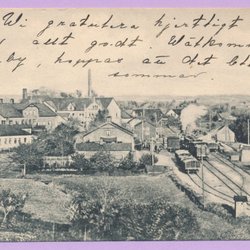 Vi gratulera hjertligt
allt godt. Välkom
by, hoppas au det bli
sommar